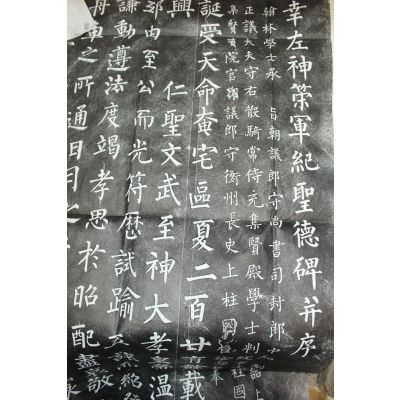 幸左神策軍紀聖德碑并序
翰林學士承旨朝議郎守尚書司封郎
正議大夫守右散騎常侍充集賢殿學士判
集賢院官朝議郎守衡州長史上柱國
誕受天命奄宅區夏二百廿載
仁聖文武至神大孝
興
郊由至公而光符歷試踰
謙動遵法度竭孝思於昭配盡
敬
舟車之所通日月之